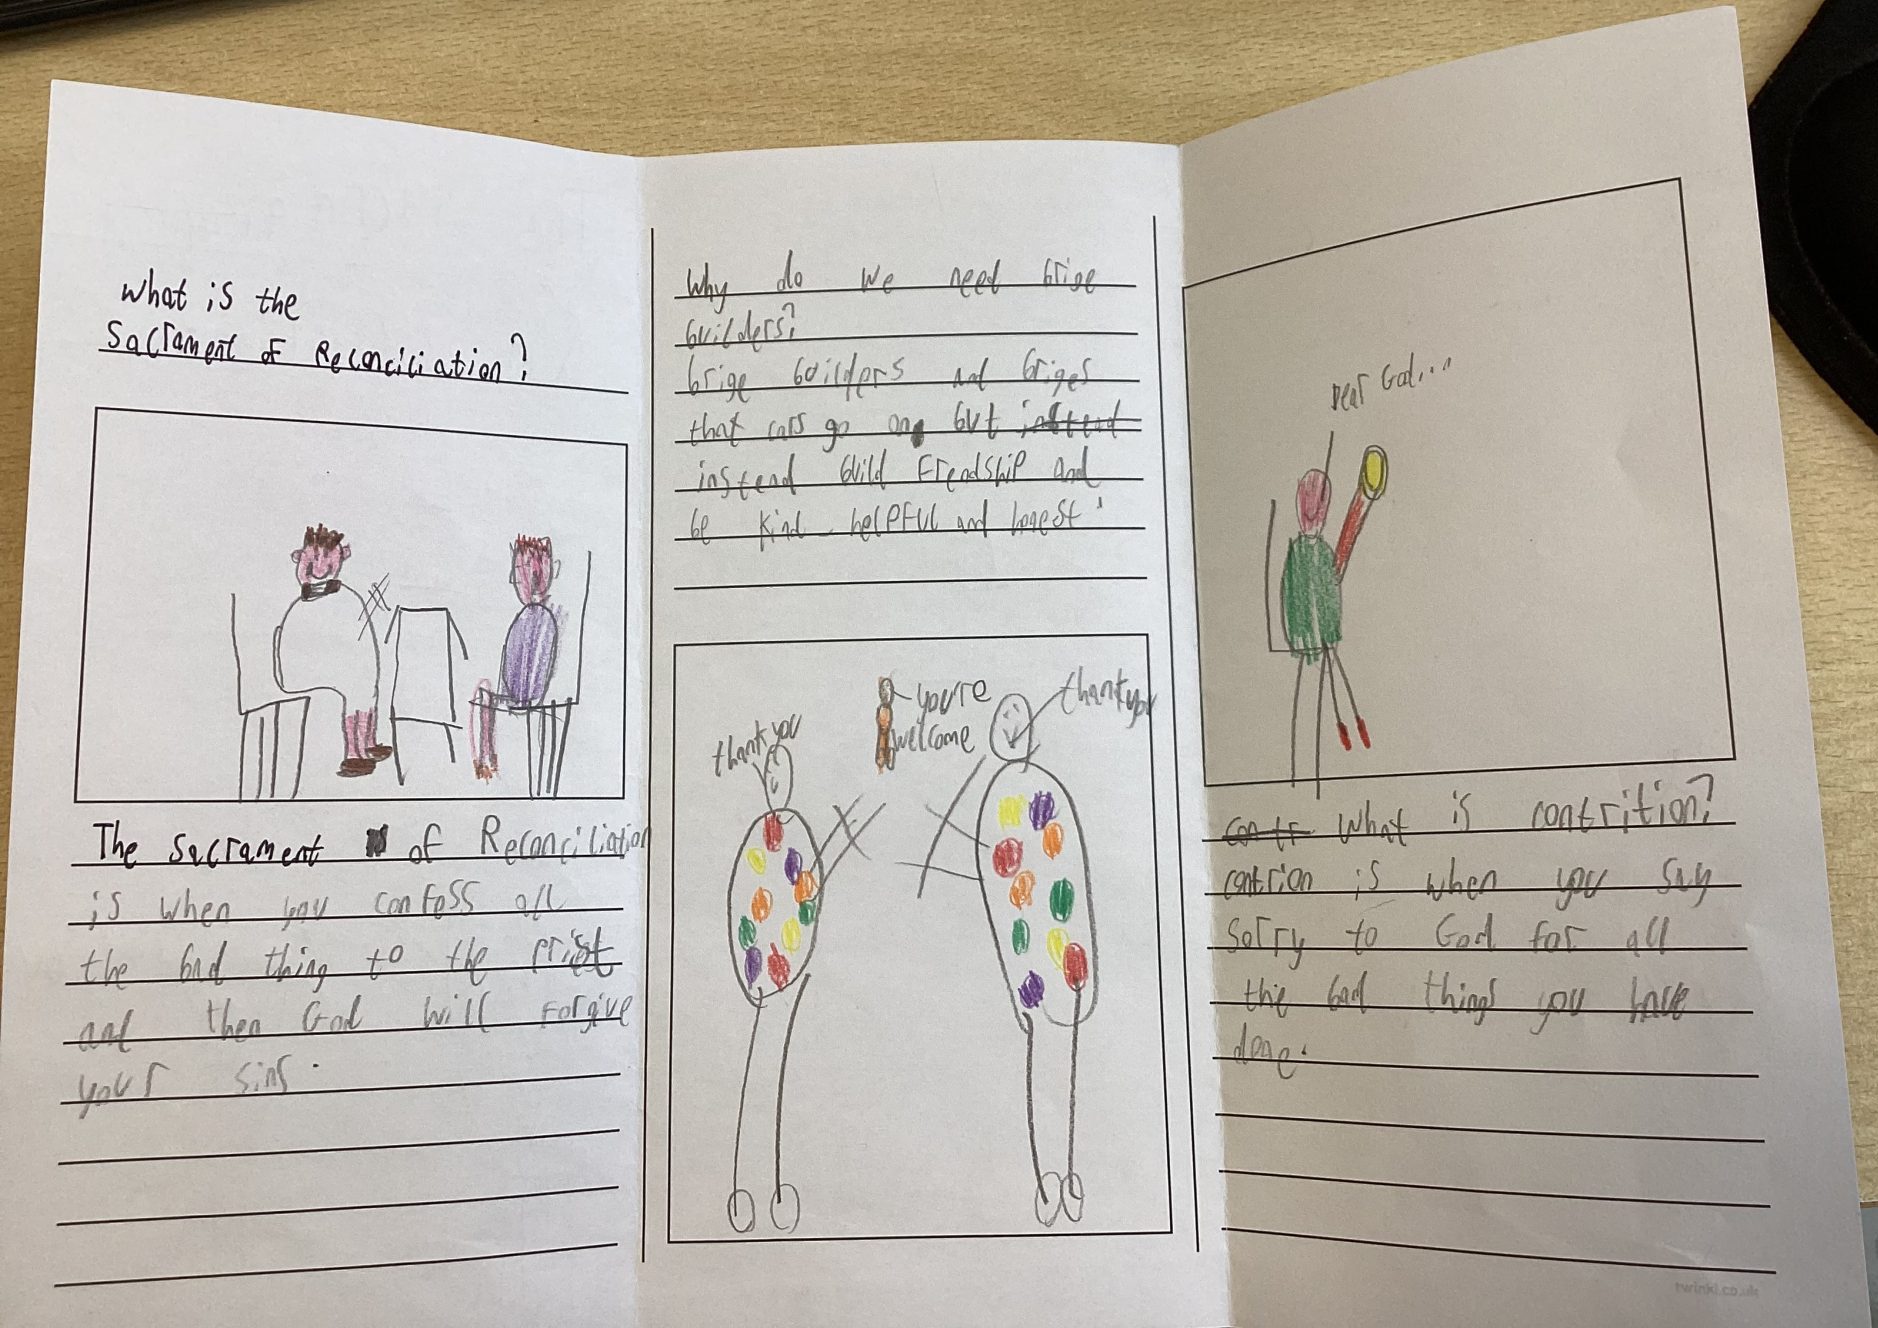 What is the
Sacrament of Reconciliation?
The Sacrament of Reconciliation
is when you confess all
the bad thing to the prist
and then God will forgive
your sins.
Why do we need brige
builders?
brige builders and briges
that cars go on but instead
instead build Freadship and
be kind helpful and honest
thank you
you're
welcome
thank you
Dear God...
contr What is contrition?
contrion is when you say
sorry to God for all
the bad things you have
done.
twinkl.co.uk